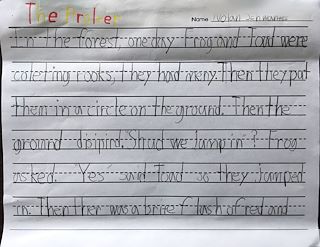 The Prolter
Name Nolan
In the forest, one day Frog and Toad were
colecting rooks, they had meny. Then they put
them in a circle on the ground. Then the
ground disipird. "Shud we Jamp in"? Frog
asked. "Yes" said Toad so they jamped
in. Then ther was a breef flash of red and